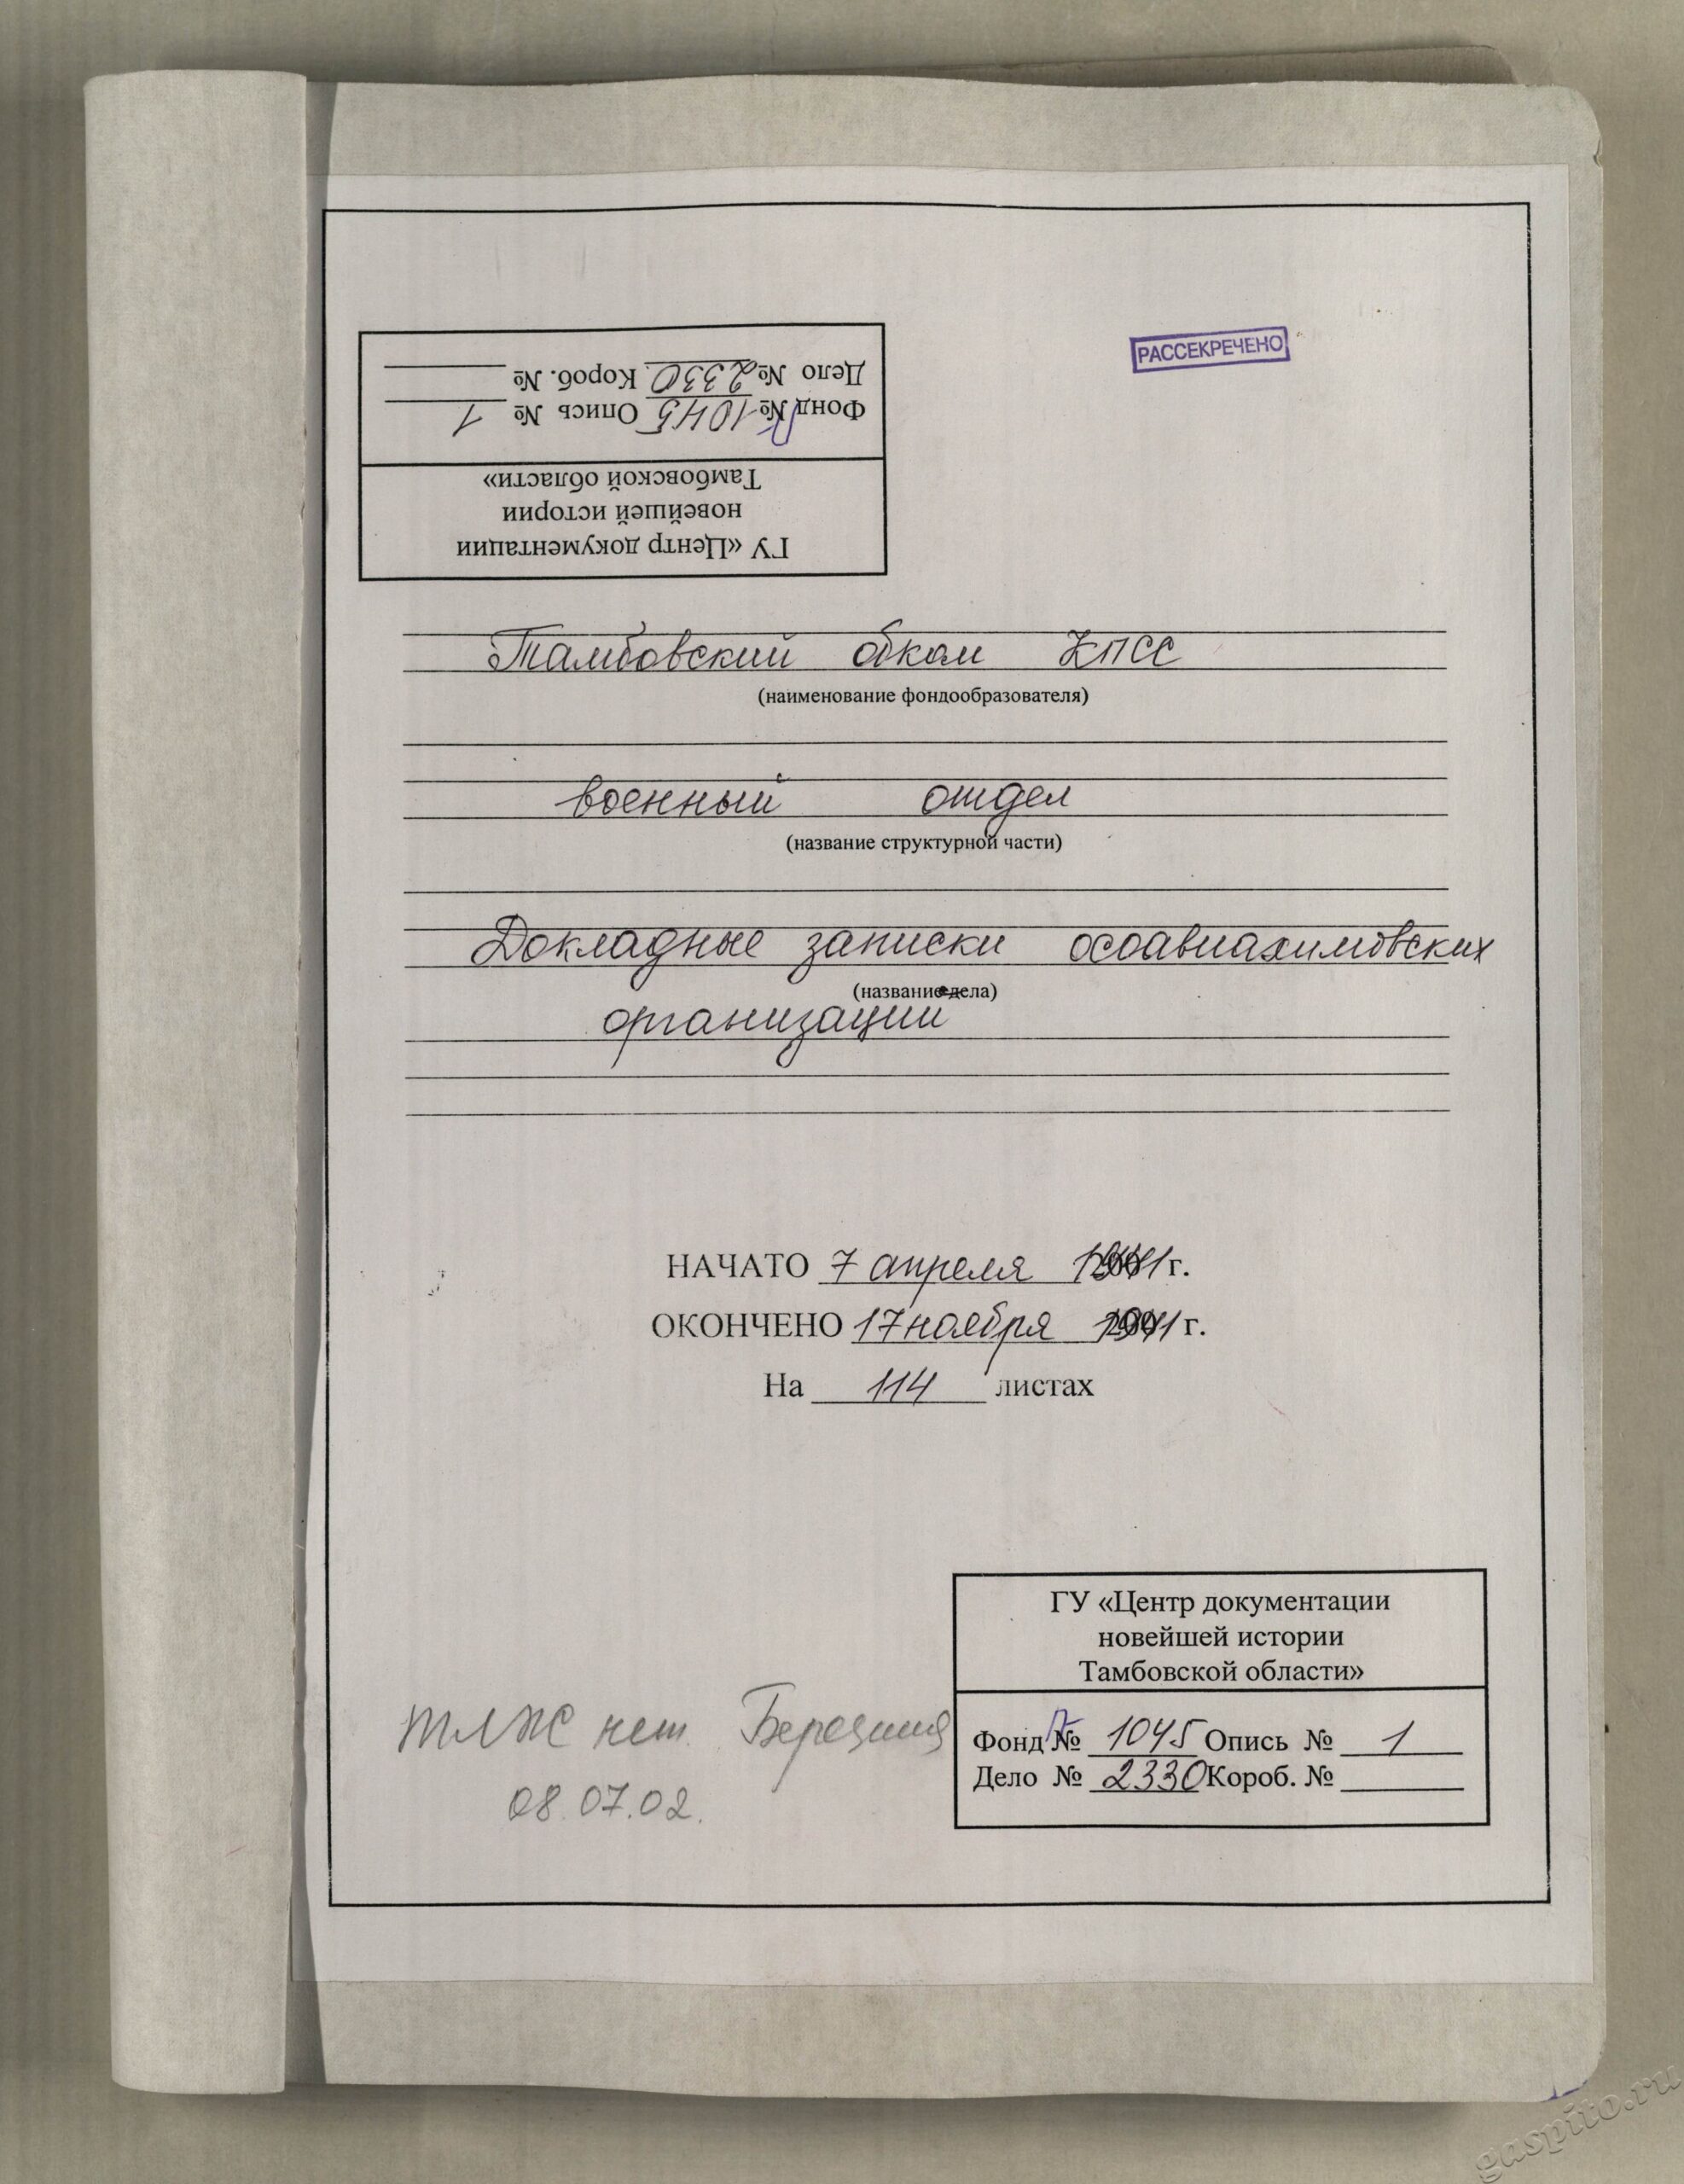 РАССЕКРЕЧЕНО
ГУ «Центр документации
новейшей истории
Тамбовской области»
Фонд П № 1045 Опись № 1
Дело № 2330 Короб. №
Тамбовский обком КПСС
(наименование фондообразователя)
военный отдел
(название структурной части)
Докладные записки осоавиахимовских
(название дела)
организаций
НАЧАТО 7 апреля 1941 г.
ОКОНЧЕНО 17 ноября 1941 г.
На 114 листах
ГУ «Центр документации
новейшей истории
Тамбовской области»
Фонд П № 1045 Опись № 1
Дело № 2330 Короб. №
нет.
08.07.02.
gaspito.ru